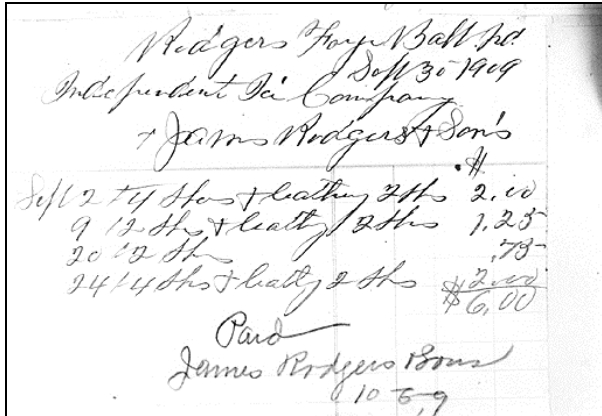 Rodgers Forge Balt. Md.
Sept 30 1909
Independent Ice Company
James Rodgers & Sons
$
Sept 2 4 shs & leathey 2 shs 2.00
9 2 shs & leathy 2 shs 1.25
20 2 shs .75
24 4 shs & leathy 2 shs 2.00
$6.00
Paid
James Rodgers Sons
10 5 9